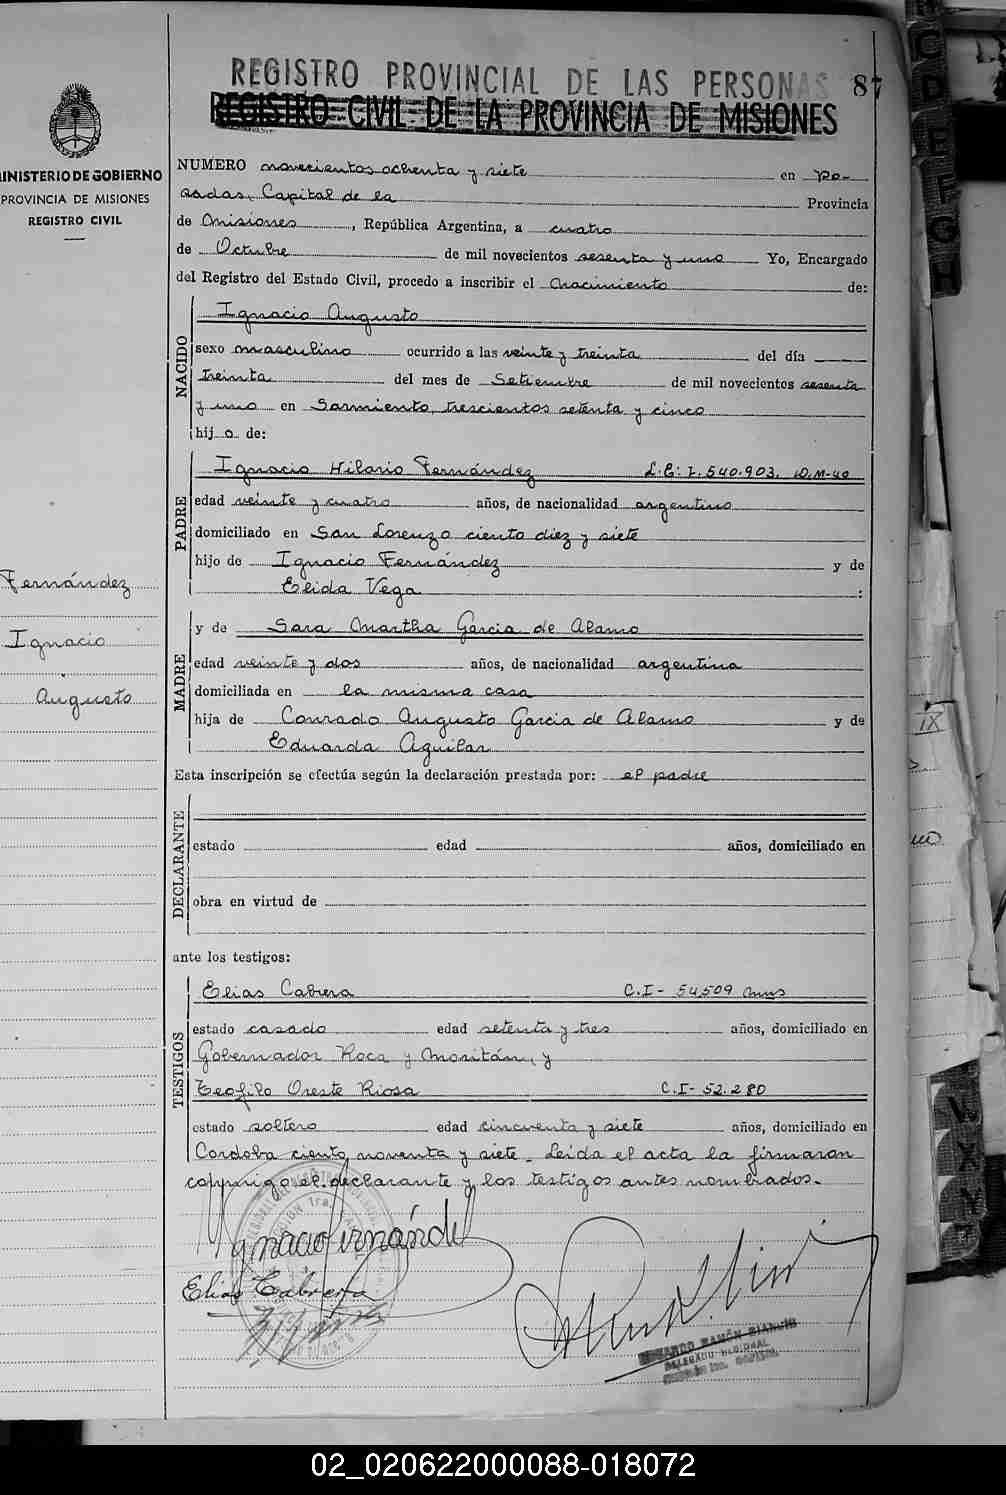 REGISTRO PROVINCIAL DE LAS PERSONAS 87
REGISTRO CIVIL DE LA PROVINCIA DE MISIONES
MINISTERIO DE GOBIERNO
PROVINCIA DE MISIONES
REGISTRO CIVIL
NUMERO novecientos ochenta y siete en Po-
sadas, Capital de la Provincia
de Misiones, República Argentina, a cuatro
de Octubre de mil novecientos sesenta y uno Yo, Encargado
del Registro del Estado Civil, procedo a inscribir el nacimiento de:
NACIDO
Ignacio Augusto
sexo masculino ocurrido a las veinte y treinta del día
treinta del mes de Setiembre de mil novecientos sesenta
y uno en Sarmiento, trescientos setenta y cinco
hijo de:
PADRE
Ignacio Hilario Fernández L.E: 7.540.903. D.M-40
edad veinte y cuatro años, de nacionalidad argentino
domiciliado en San Lorenzo ciento diez y siete
hijo de Ignacio Fernández y de
Elida Vega :
Fernández
Ignacio
Augusto
MADRE
y de Sara Martha Garcia de Alamo
edad veinte y dos años, de nacionalidad argentina
domiciliada en la misma casa
hija de Conrado Augusto Garcia de Alamo y de
Eduarda Aguilar
Esta inscripción se efectúa según la declaración prestada por: el padre
DECLARANTE
estado edad años, domiciliado en
obra en virtud de
ante los testigos:
TESTIGOS
Elias Cabrera C.I- 54,509 Mnes
estado casado edad setenta y tres años, domiciliado en
Gobernador Roca y Moritán, y
Teofilo Oreste Riosa C.I- 52.280
estado soltero edad cincuenta y siete años, domiciliado en
Cordoba ciento noventa y siete. Leida el acta la firmaron
conmigo el declarante y los testigos antes nombrados.-
Ignacio Fernández
Elias Cabrera
RAMÓN BIANCHI
DELEGADO REGIONAL
02_020622000088-018072